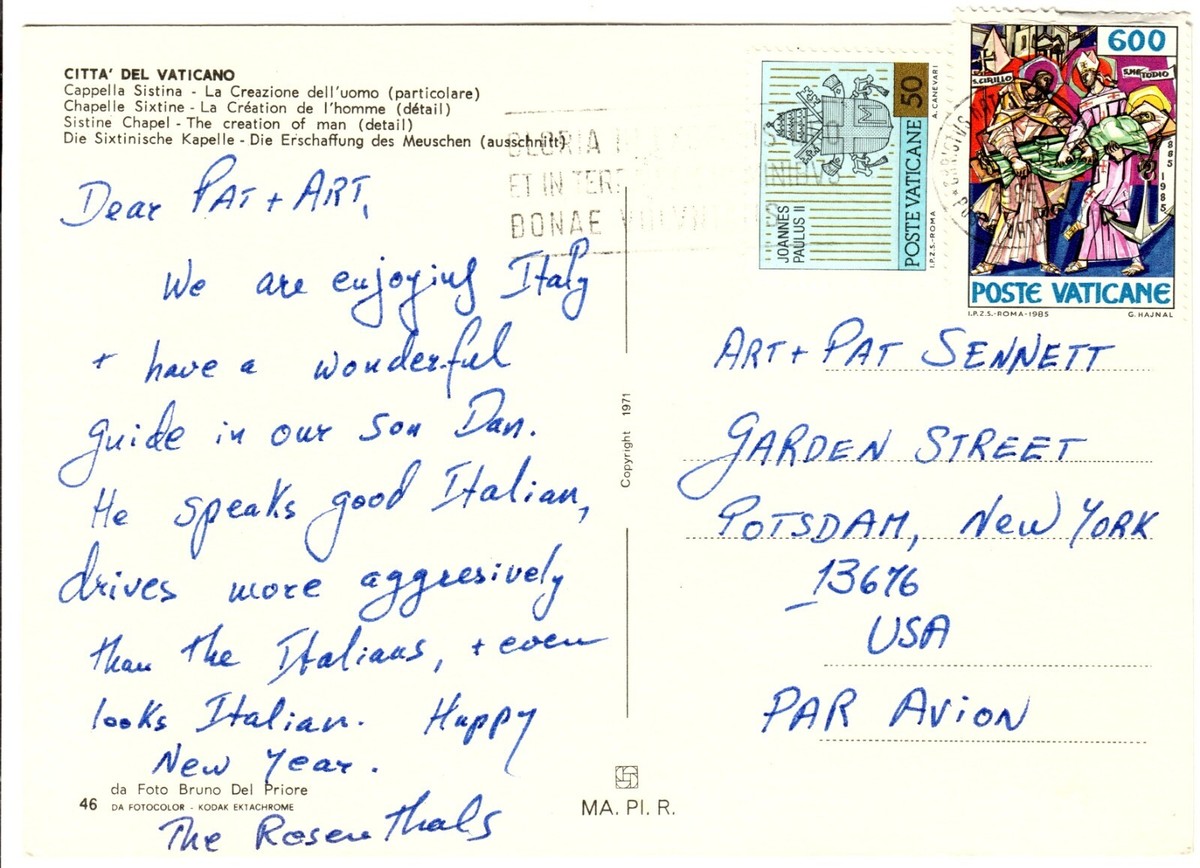 CITTA' DEL VATICANO
Cappella Sistina - La Creazione dell'uomo (particolare)
Chapelle Sixtine - La Création de l'homme (détail)
Sistine Chapel - The creation of man (detail)
Die Sixtinische Kapelle - Die Erschaffung des Meuschen (ausschnitt)
Dear PAT + ART,
We are enjoying Italy
+ have a wonderful
guide in our son Dan.
He speaks good Italian,
drives more aggresively
than the Italians, + even
looks Italian. Happy
New Year.
The Rosenthals
da Foto Bruno Del Priore
46 DA FOTOCOLOR - KODAK EKTACHROME
Copyright 1971
MA. PI. R.
GLORIA
ET IN TERR
BONAE
50
A. CANEVARI
JOANNES
PAULUS II
POSTE VATICANE
I.P.Z.S.-ROMA
600
S. CIRILLO
S. METODIO
885 1985
POSTE VATICANE
I.P.Z.S.-ROMA-1985 G. HAJNAL
ART + PAT SENNETT
GARDEN STREET
POTSDAM, New YORK
13676
USA
PAR AVION